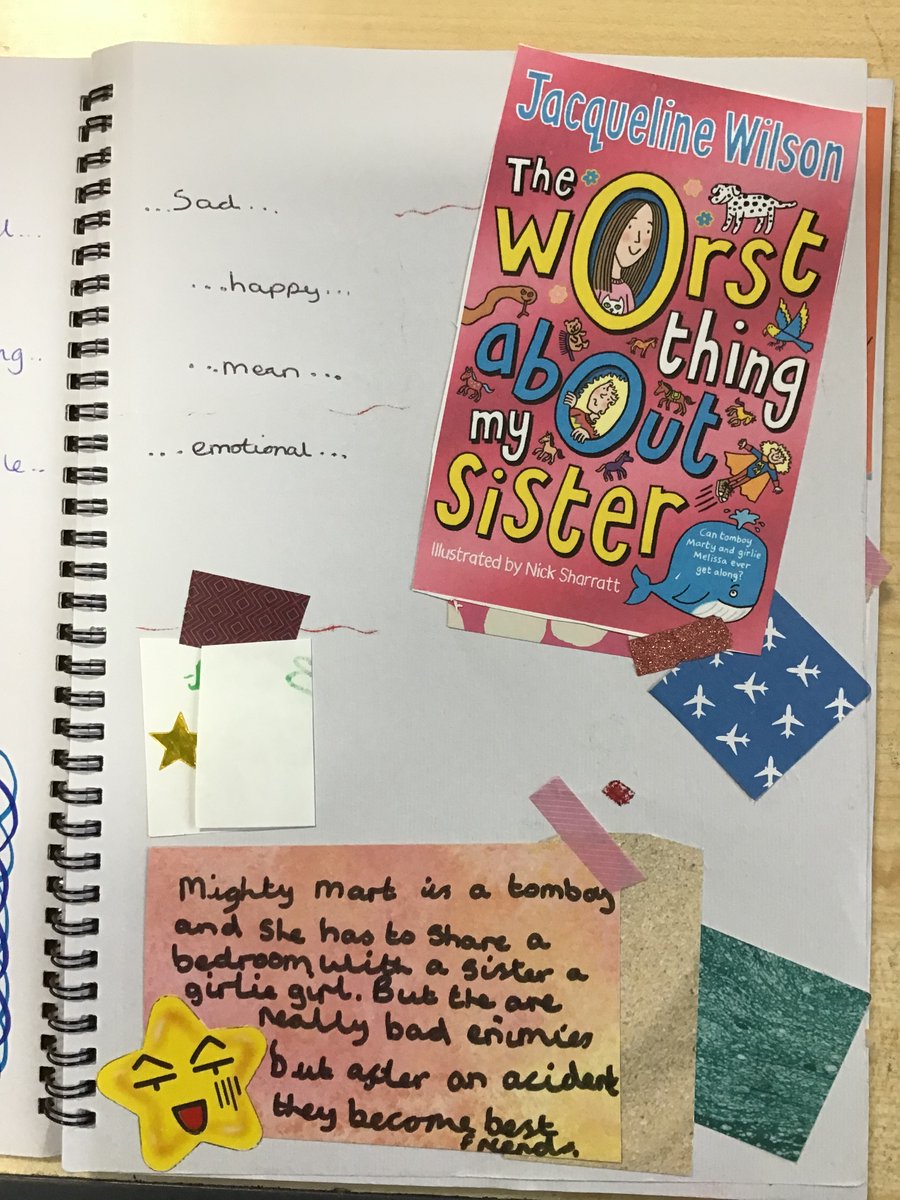 ...Sad...
...happy...
...mean...
...emotional...
Jacqueline Wilson
The
worst
thing
about
my
sister
Illustrated by Nick Sharratt
Can tomboy
Marty and girlie
Melissa ever
get along?
Mighty mart is a tomboy
and she has to share a
bedroom with a sister a
girlie girl. But the are
really bad enimies
but after an acident
they become best
friends.